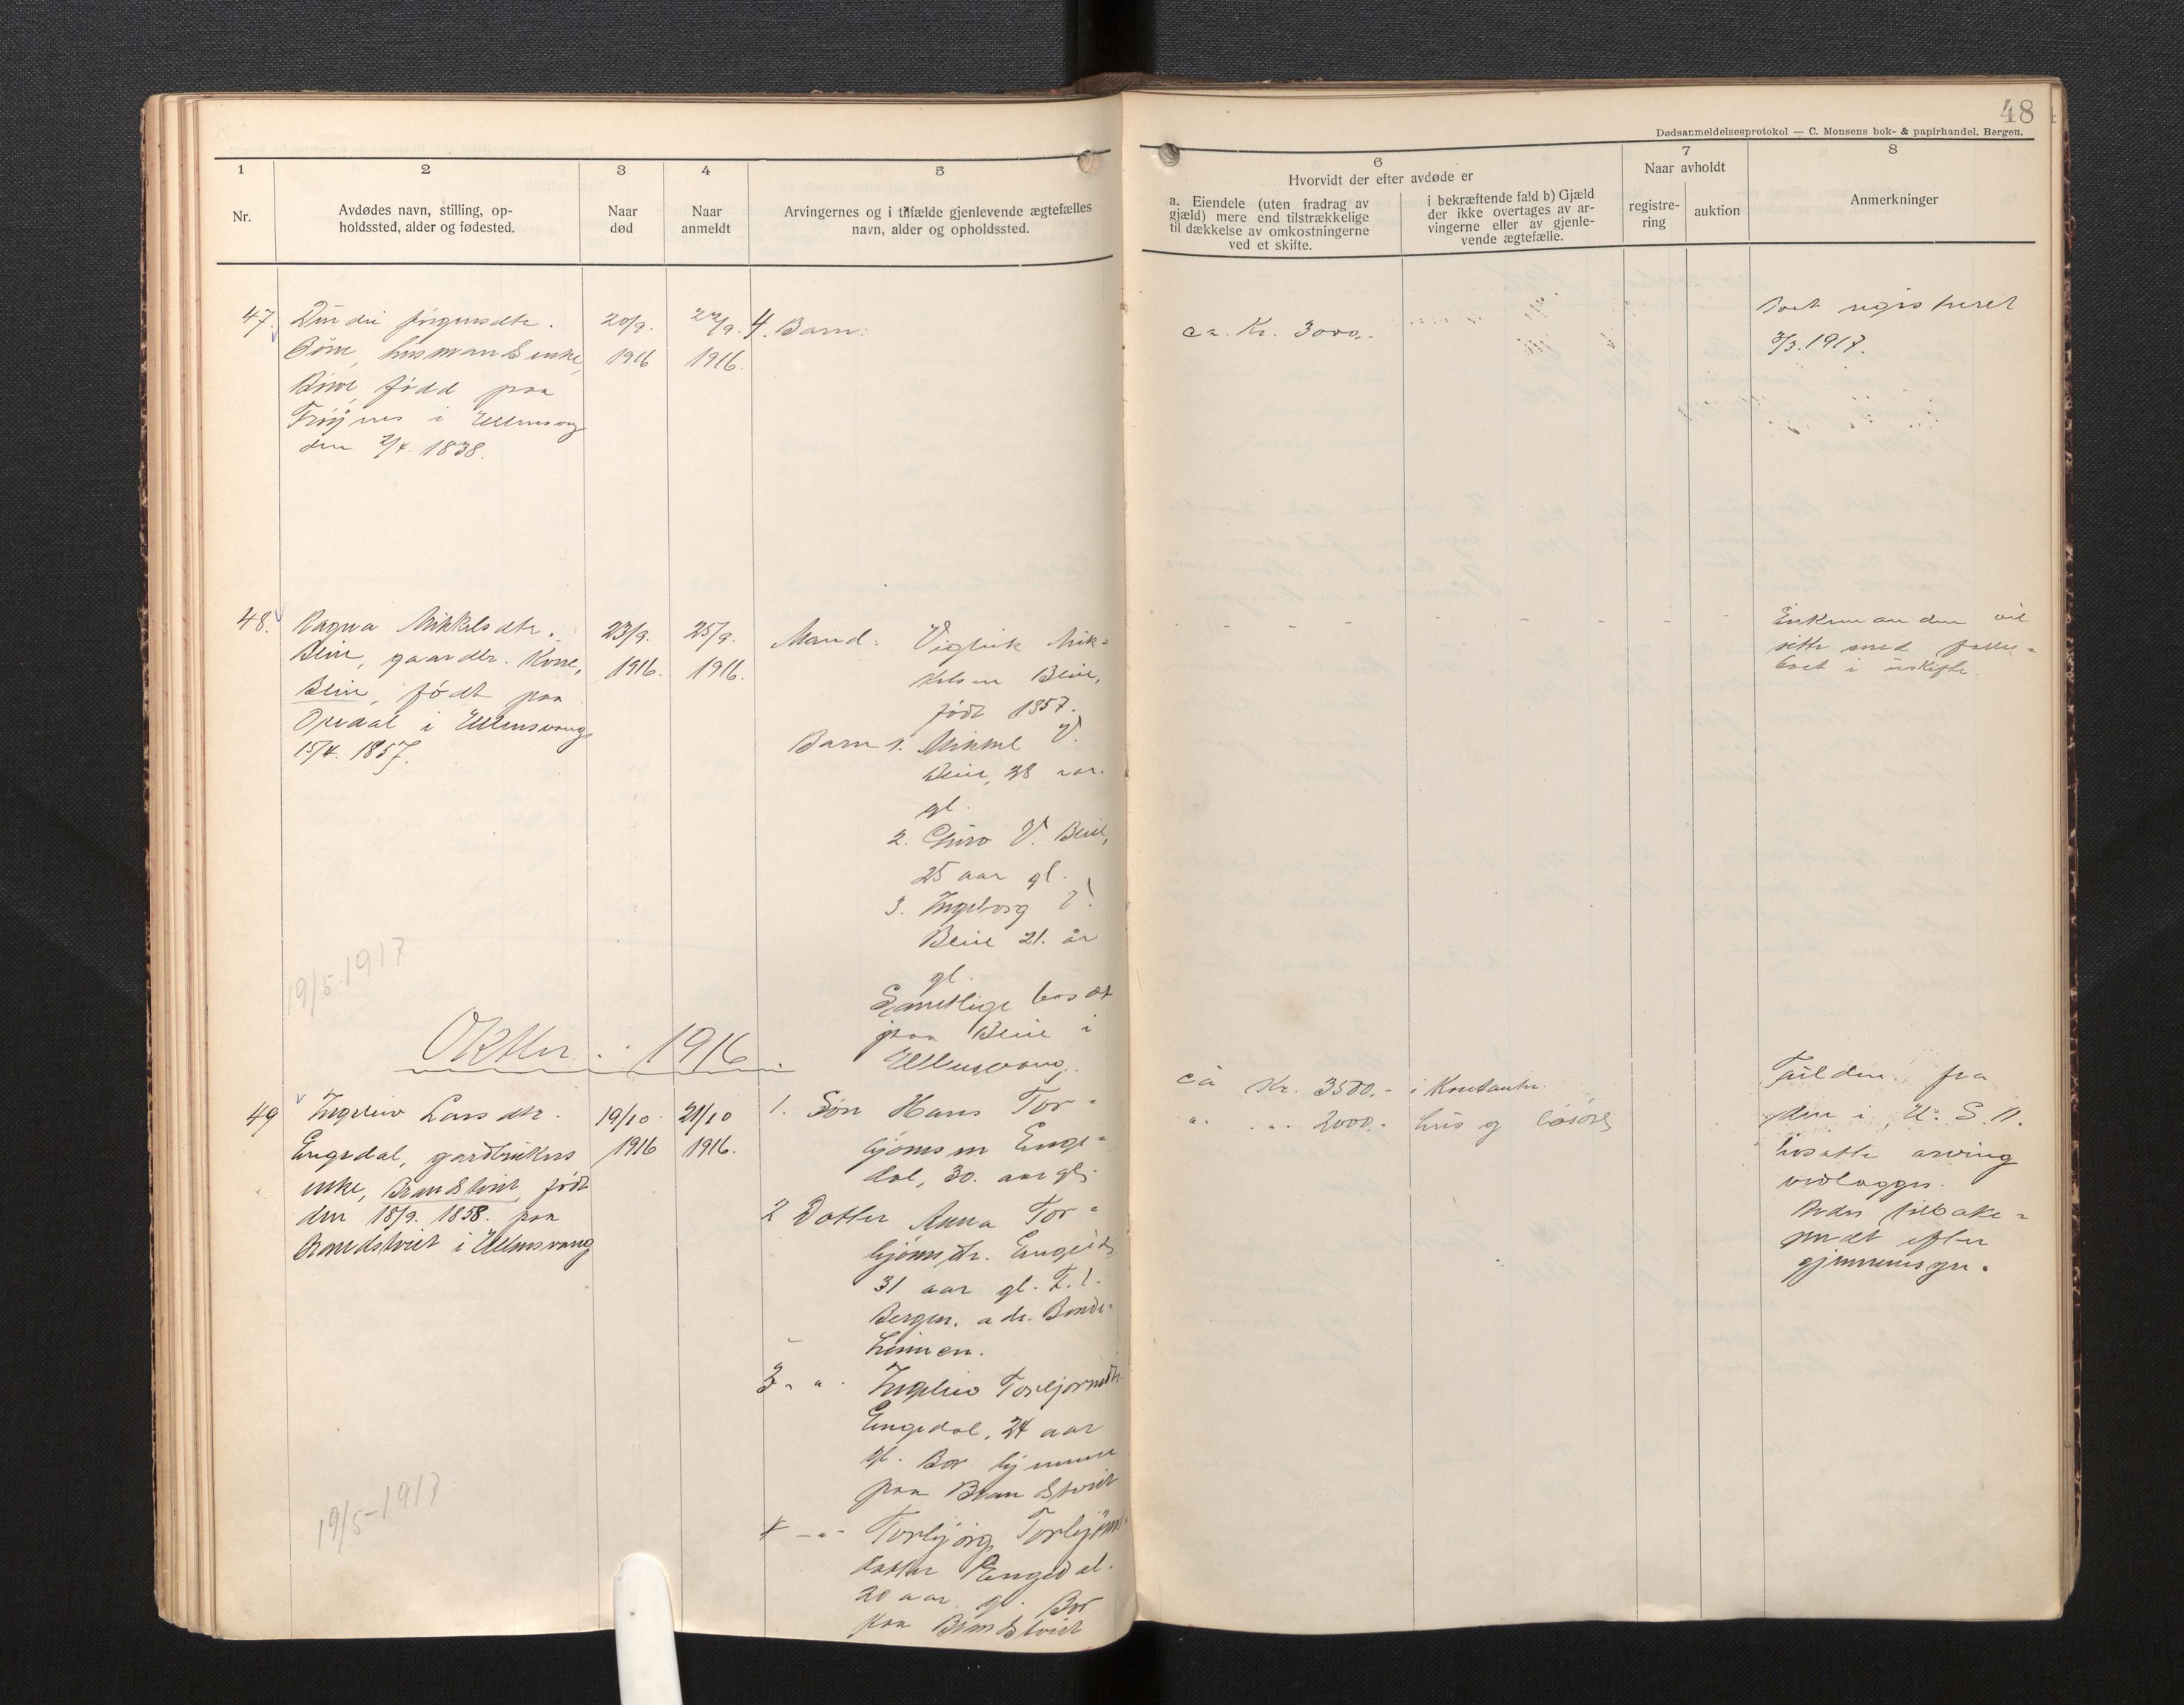 48
Dødsanmeldelsesprotokol — C. Monsens bok- & papirhandel, Bergen.
1
2
3
4
5
6
7
8
Nr.
Avdødes navn, stilling, op-
holdssted, alder og fødested.
Naar
død
Naar
anmeldt
Arvingernes og i tilfælde gjenlevende ægtefælles
navn, alder og opholdssted.
Hvorvidt der efter avdøde er
a. Eiendele (uten fradrag av
gjæld) mere end tilstrækkelige
til dækkelse av omkostningerne
ved et skifte.
i bekræftende fald b) Gjæld
der ikke overtages av ar-
vingerne eller av gjenle-
vende ægtefælle.
Naar avholdt
registre-
ring
auktion
Anmerkninger
47.
husmands enke,
født paa
i Ullensvang
den 2/4. 1838.
20/9.
1916
1916.
4. Barn:
ca. Kr. 3000,-
boet registreret
3/3. 1917.
48.
Ragna Mikkelsdtr.
Beie, gaardbr. Kone,
Beie, født paa
Opedal i Ullensvang
15/4. 1857.
23/9.
1916.
25/9.
1916.
Mand: Viglik Mik-
kelsen Beie,
født 1857.
Barn 1. Mikkel V.
Beie, 28 aar.
gl.
2. Guro V. Beie,
25 aar gl.
3. Ingeborg V.
Beie 21. år
gl.
Samtlige bosat
paa Beie i
Ullensvang.
Enkemanden vil
sitte med fælles-
boet i uskifte.
19/5.1917
Oktbr. 1916.
49
Larsdtr.
Engedal, gardbrukers
enke, Brandstveit, født
den 18/9. 1858. paa
Brandstveit i Ullensvang
19/10
1916
21/10
1916.
1. Søn Hans Tor-
bjørnsen Enge-
dal, 30. aar gl.
2 Datter Anna Tor-
bjørnsdtr. Engedal
31 aar gl. F. t.
Bergen. adr. Bonde-
heimen.
3 - " - Torbjørnsdtr.
Engedal, 24 aar
gl. Bor hjemme
paa Brandstveit
4 - " - Torbjørg Torbjørns-
datter Engedal.
20 aar. gl. Bor
paa Brandstveit
ca Kr. 3500,- i Kontanter.
" " 2000,- hus og løsøre
fra
den i U. S. A.
bosatte arving
vedlægges.
Bedes tilbake-
sendt efter
gjennemsyn.
19/5-1917